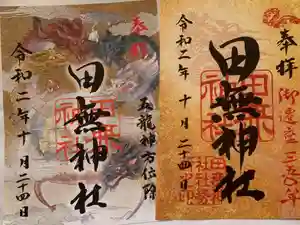 奉拝
御遷座三五〇年
田無神社
令和二年十月二十四日
奉拝
五龍神方位除
田無神社
令和二年十月二十四日